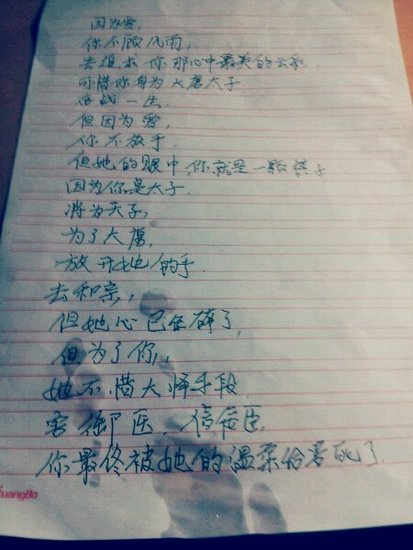 因为爱,
你不顾风雨,
去追求你那心中最美的云彩.
可惜你身为大唐太子
一生.
但因为爱,
你不放手.
但她的眼中,你就是一颗棋子
因为你是太子.
将为天子,
为了大唐,
放开她的手.
去和亲,
但她心已在碎了,
但为了你,
她不惜大 手段.
害御医 信
你最终被她的温柔给害死了
GuangBo